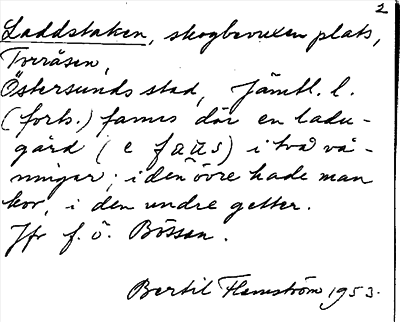 2
Laddstaken, skogbevuxen plats,
Torråsen,
Östersunds stad, Jämtl. l.
(forts.) fanns där en ladu-
gård (e faus) i två vå-
ningar; i den övre hade man
kor, i den undre getter.
Jfr f. ö. Bössan.
Bertil Flemström 1953.